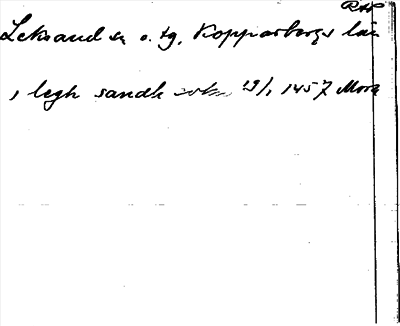 RAP
Leksand sn o. tg, Kopparbergs län
i legh sandh sokn 19/1 1457 Mora